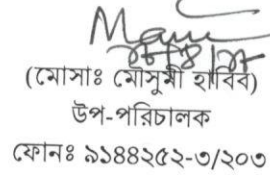 (মোসাঃ মৌসুমী হাবিব)
উপ-পরিচালক
ফোনঃ ৯১৪৪২৫২-৩/২০৩